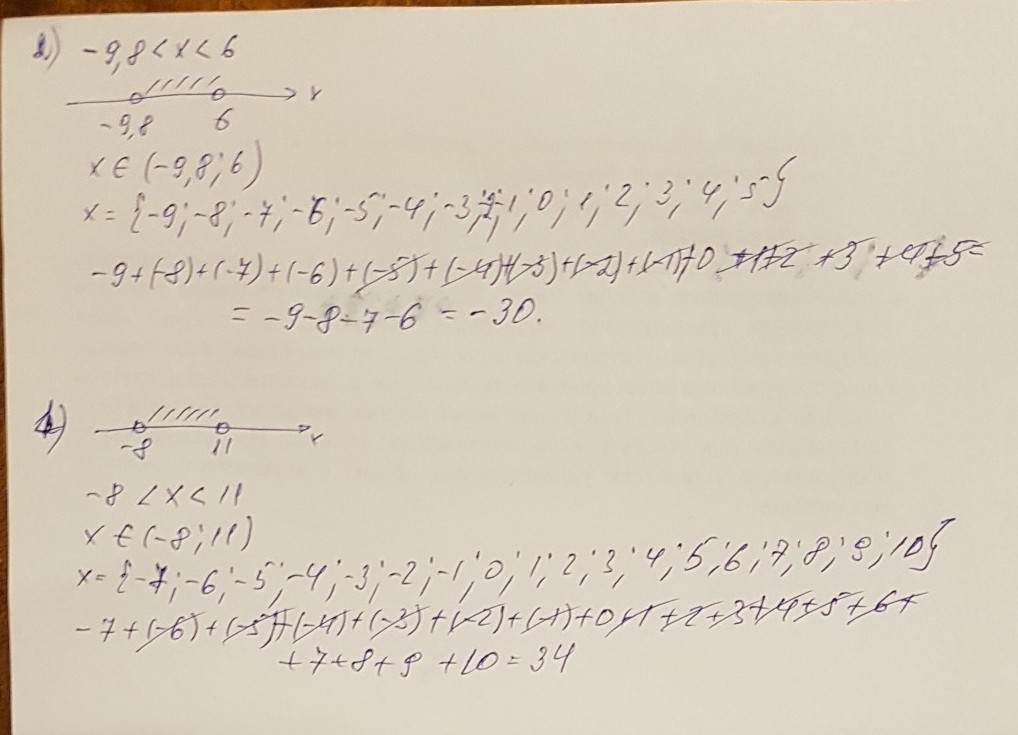 2) -9,8 < x < 6
x
-9,8 6
x ∈ (-9,8; 6)
x = {-9; -8; -7; -6; -5; -4; -3; -2; -1; 0; 1; 2; 3; 4; 5}
-9+(-8)+(-7)+(-6)+(-5)+(-4)+(-3)+(-2)+(-1)+0+1+2+3+4+5=
= -9-8-7-6 = -30.
x
-8 11
-8 < x < 11
x ∈ (-8; 11)
x = {-7; -6; -5; -4; -3; -2; -1; 0; 1; 2; 3; 4; 5; 6; 7; 8; 9; 10}
-7+(-6)+(-5)+(-4)+(-3)+(-2)+(-1)+0+1+2+3+4+5+6+
+7+8+9+10=34